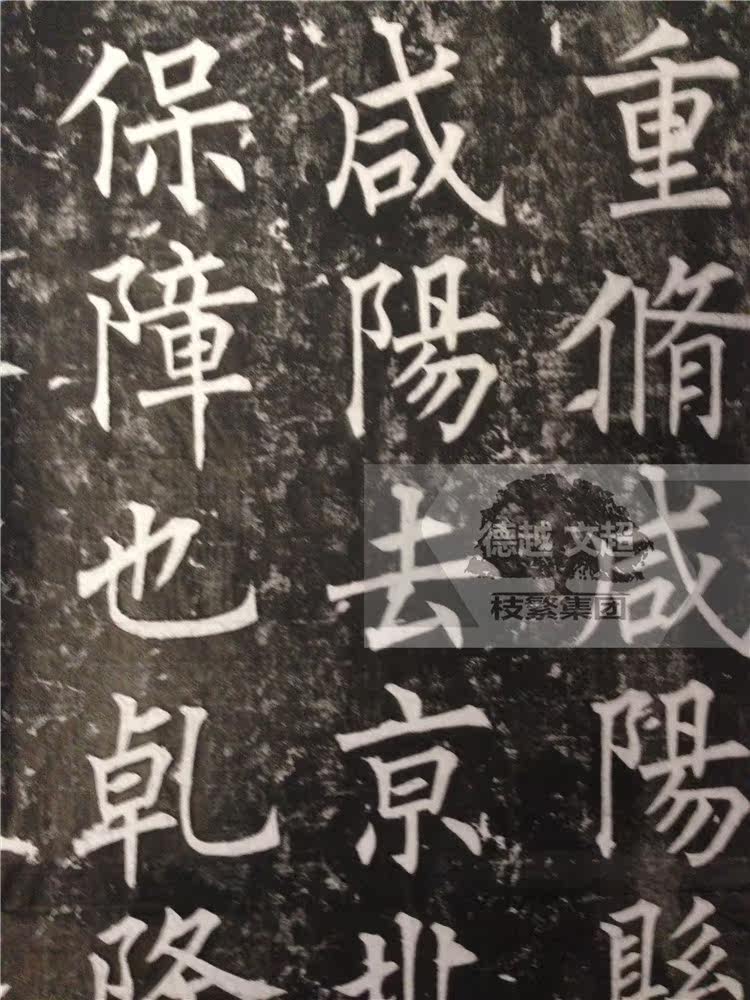 重脩咸陽縣
咸陽去亰
保障也乹隆
德越 文超
枝繁集团